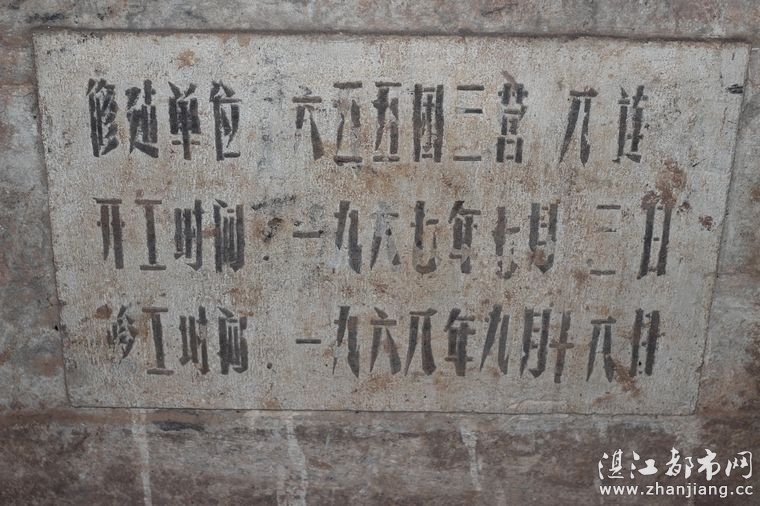 修造单位 六五五团三营 八连
开工时间:一九六七年七月三日
竣工时间 一九六八年九月十六日
湛江都市网
www.zhanjiang.cc